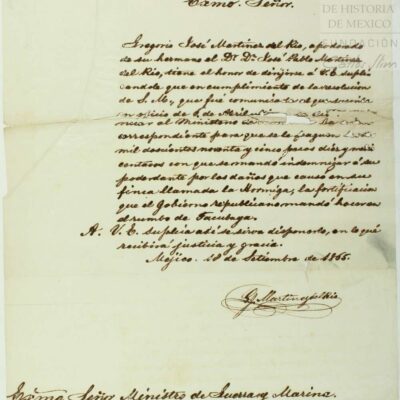 Exmo. Señor.
DE HISTORIA
DE MEXICO
FUNDACIÓN
Carlos Slim
Gregorio José Martinez del Rio, apoderado
de su hermano el Dr. Dn. José Pablo Martinez
del Rio, tiene el honor de dirijirse á V. E. suplicandole
que en cumplimiento de la resolucion
de S. M., que fué comunicada
en oficio de 6 de Abril
al Ministerio
correspondiente para que se le paguen
mil doscientos noventa y cinco pesos diez y seis
centavos con que se mandó indemnizar á su
poderdante por los daños que causó en su
finca llamada la Hormiga, la fortificacion
que el Gobierno republicano mandó hacer en
el rumbo de Tacubaya.
A. V. E. suplica así se sirva disponerlo, en lo que
recibirá justicia y gracia.
Méjico. 18 de Setiembre de 1865.
G. Martinez del Rio
Exmo. Señor Ministro de Guerra y Marina.